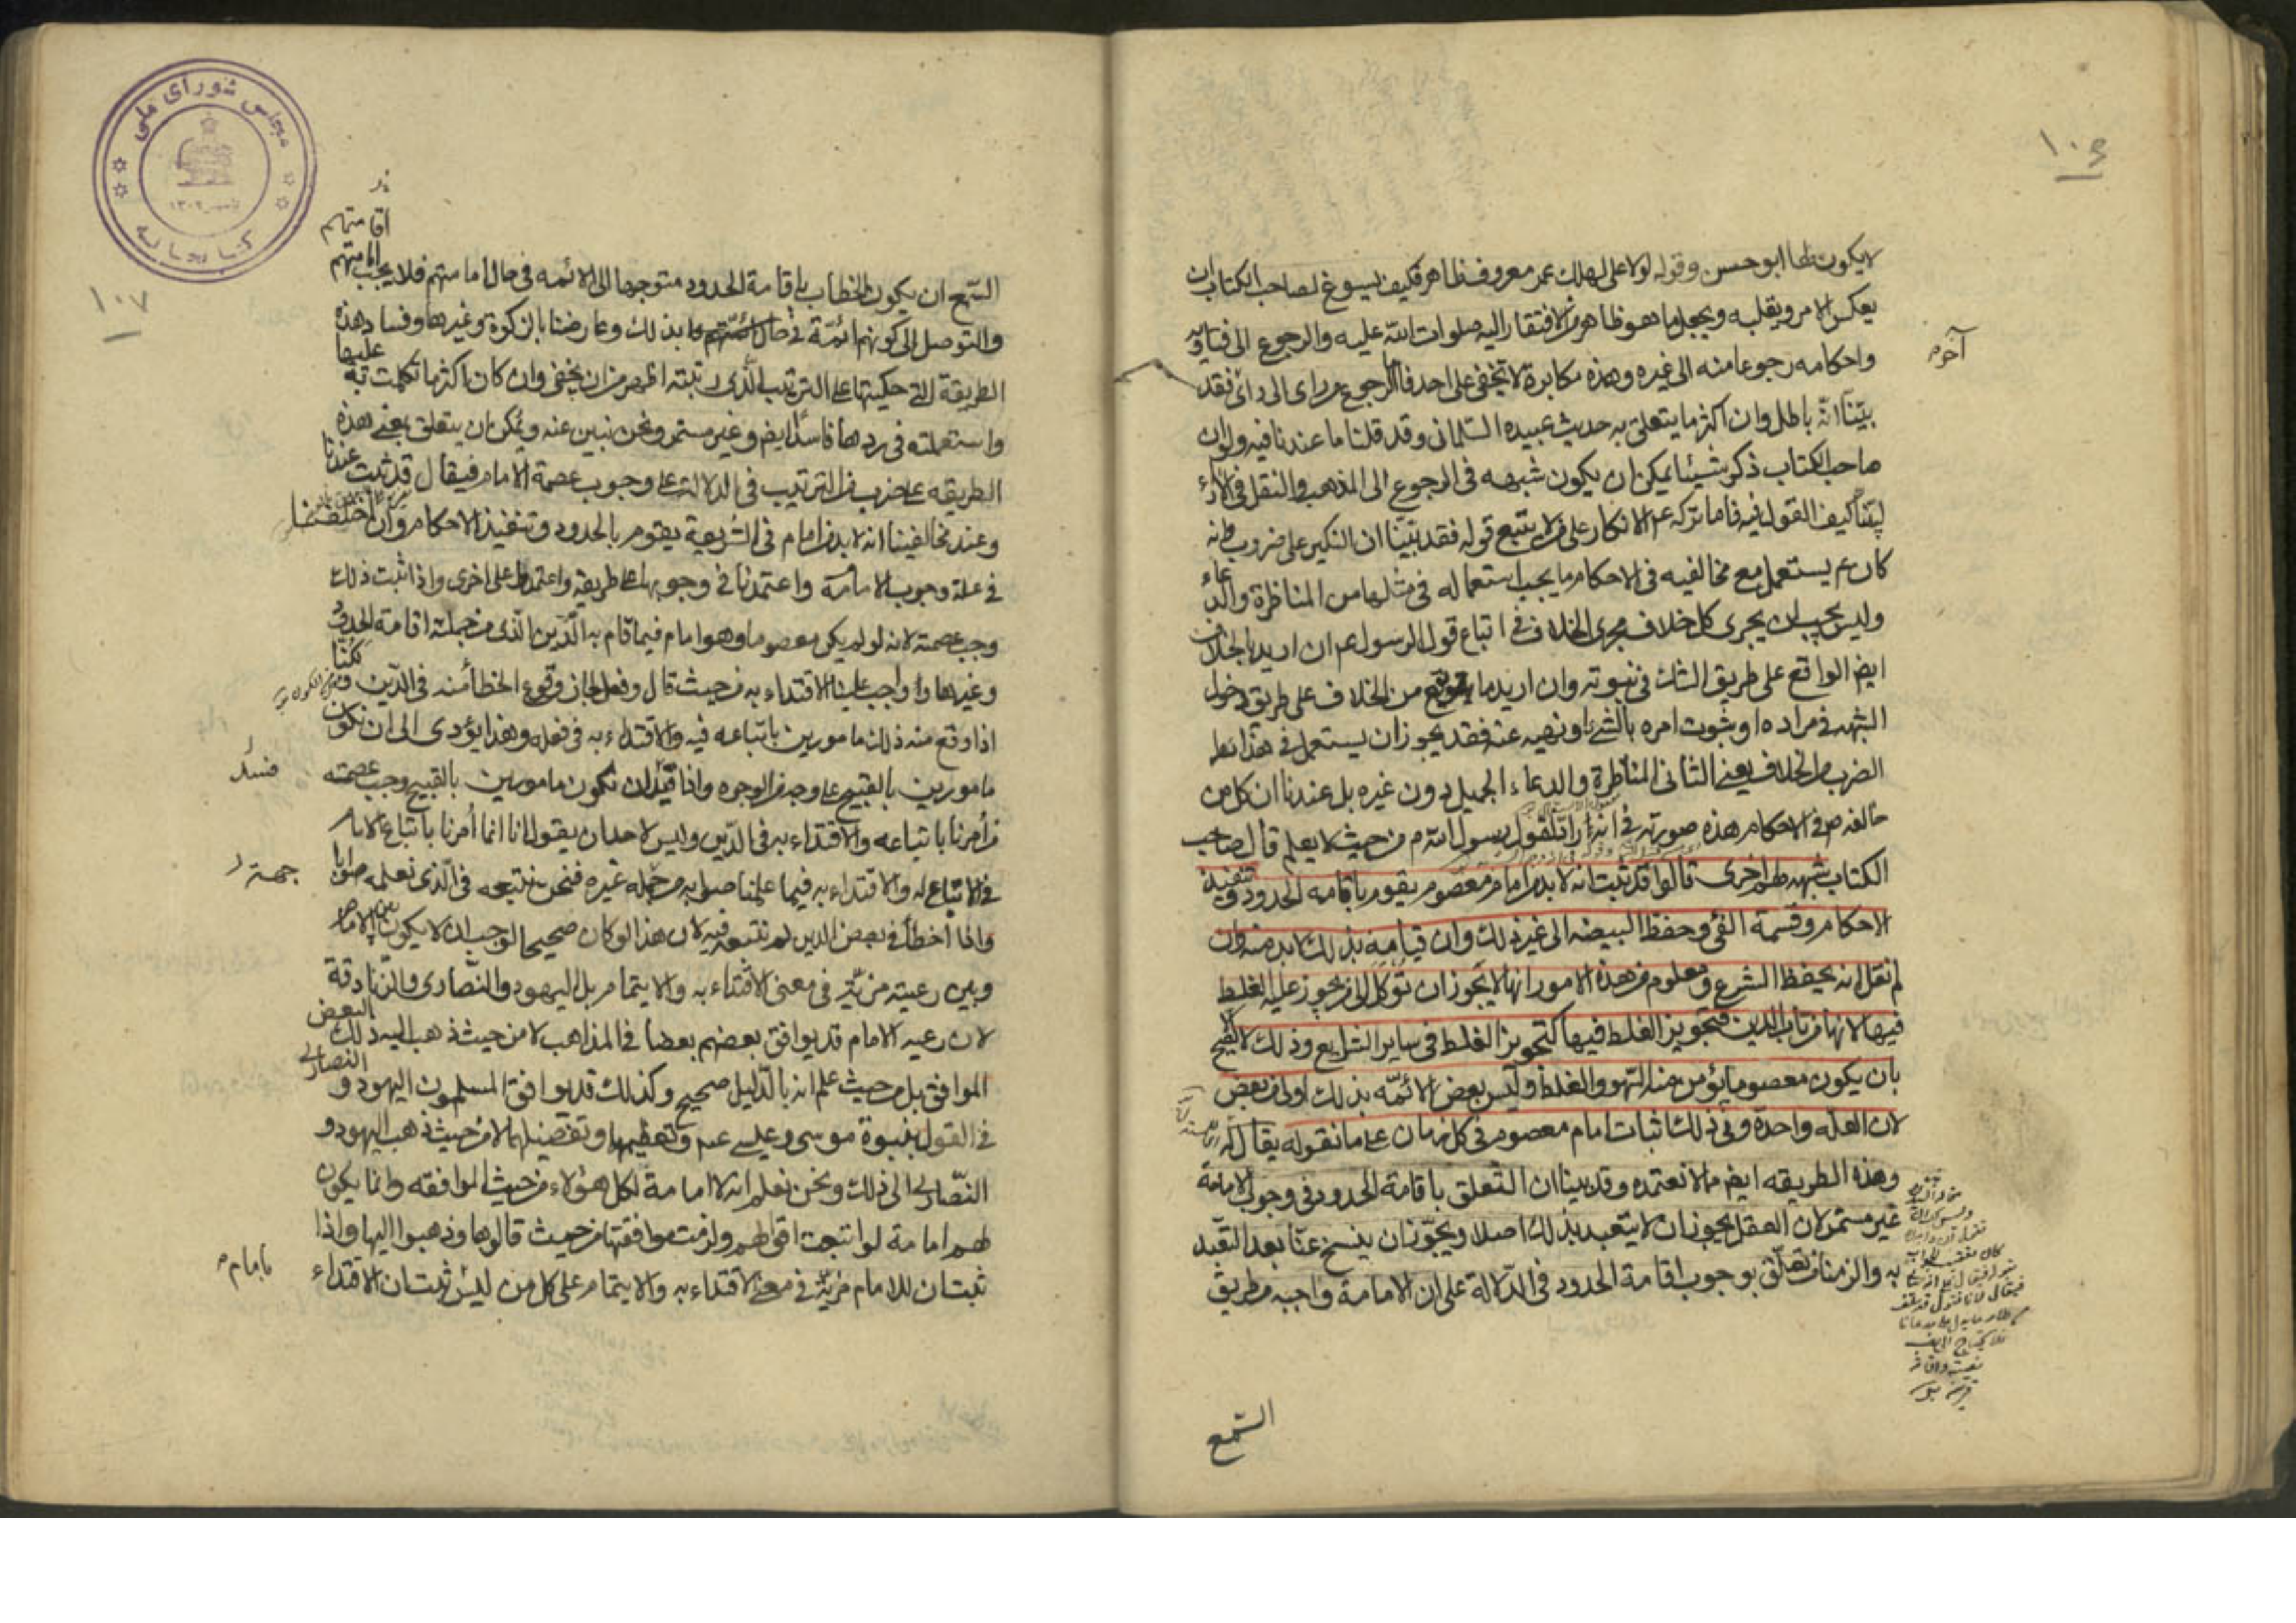 ١٠٦
لا يكون لها ابو حسن وقوله لولا على لهلك عمر معروف ظاهر فكيف يسوغ لصاحب الكتاب ان
يعكس الامر ويقلبه ويجعل ما هو ظاهر من الافتقار اليه صلوات الله عليه والرجوع الى فتاويه
واحكامه رجوعا منه الى غيره وهذه مكابرة لا تخفى على احد فاما الرجوع من راى الى راى فقد
آخر
بيّنا انّه باطل وان اكثر ما يتعلق به حديث عبيده السلمانى وقد قلنا ما عندنا فيه ولو ان
صاحب الكتاب ذكر شيئا يمكن ان يكون شبهه فى الرجوع الى المذهب والتنقل فى الآراء
لبيّنا كيف القول فيه فاما تركه عم الانكار على من لا يتبع قوله فقد بينا ان النكير على ضروب وانه
كان عم يستعمل مع مخالفيه فى الاحكام ما يجب استعماله فى مثلها من المناظرة والدعاء
وليس يجب ان يجرى كل خلاف مجرى الخلاف فى اتباع قول الرسول عم ان اريد بالخلاف
ايض الواقع على طريق الشك فى نبوته وان اريد ما يقع من الخلاف على طريق دخول
الشبهه فى مراده او ثبوت امره بالشئ او نهيه عنه فقد يجوز ان يستعمل فى هذا
الضرب من الخلاف يعنى الثانى المناظرة والدعاء الجميل دون غيره بل عندنا ان كل من
خالفه ص فى الاحكام هذه صورته فى انه راد لقول رسول الله م من حيث لا يعلم قال صاحب
الكتاب شبهه لهم اخرى قالوا قد ثبت انه لا بد من امام معصوم يقوم باقامه الحدود وتنفيذ
الاحكام وقسمة الفئ وحفظ البيضه الى غير ذلك وان قيامه بذلك لا بد منه وان
لم نقل انه يحفظ الشرع ومعلوم من هذه الامور انها لا يجوز ان توكل الى من يجوز عليه الغلط
فيها لانها من باب الدين فتجويز الغلط فيها كتجويز الغلط فى ساير الشرايع وذلك لا يصح
بان يكون معصوما يؤمن منه السهو والغلط وليس بعض الائمّه بذلك اولى من بعض
لان العله واحدة وفى ذلك اثبات امام معصوم فى كل زمان على ما نقوله يقال له
وهذه الطريقه ايض مما لا نعتمده وقد بينا ان التعلق باقامة الحدود فى وجوب الامامة
غير مستمر لان العقل يجوز ان لا يتعبد بذلك اصلا ويجوز ان ينسخ عنّا بعد التعبّد
به والزمنا من تعلّق بوجوب اقامة الحدود فى الدّلالة على ان الامامة واجبه من طريق
السّمع
١٠٧
اقامتهم
السّمع ان يكون الخطاب باقامة الحدود متوجها الى الائمه فى حال امامتهم فلا يجب امامتهم
والتوصل الى كونهم ائمّة فى حال بذلك وعارضنا بالزكوة وغيرها وفساد هذه
الطريقة التى حكيتها على الترتيب الّذى رتبته اظهر من ان يخفى وان كان اكثر ما تكلمت به عليها
واستعملته فى ردها فاسدا ايض وغير مستمر ونحن نبين عنه ويمكن ان يتعلق بمعنى هذه
الطريقه على ضرب من الترتيب فى الدلالة على وجوب عصمة الامام فيقال قد ثبت عندنا
وعند مخالفينا انه لا بد من امام فى الشريعة يقوم بالحدود وتنفيذ الاحكام وان اختلفنا
فى علة وجوب الامامة واعتمدنا فى وجوبها على طريقه واعتمدوا على اخرى واذا ثبت ذلك
وجب عصمته لانه لو لم يكن معصوما وهو امام فيما قام به الدّين الّذى من جملته اقامة الحدود
وغيرها واوجب علينا الاقتداء به من حيث قال وفعل لجاز وقوع الخطأ منه فى الدّين ولكنّا
اذا وقع منه ذلك مامورين باتباعه فيه والاقتداء به فى فعله وهذا يؤدى الى ان نكون
مامورين بالقبيح على وجه من الوجوه واذا فسد ان نكون مامورين بالقبيح وجب عصمته
فسد
من أمرنا باتباعه والاقتداء به فى الدّين وليس لاحد ان يقول انا انما أمرنا باتباع الامام
فى الاتباع له والاقتداء به فيما علمنا صوابه من جهة غيره فنحن نتبعه فى الّذى نعلمه صوابا
جهة
واذا أخطأ فى بعض الدين لم نتبعه فيه لان هذا لو كان صحيحا لوجب ان لا يكون بين الامام
وبين رعيته مزيّة فى معنى الاقتداء به والايتمام بل اليهود والنصارى والزّنادقة
لان رعيه الامام قد يوافق بعضهم بعضا فى المذاهب لا من حيث ذهب اليه ذلك البعض
الموافق بل من حيث علم انه بالدّليل صحيح وكذلك قد يوافق المسلمون اليهود والنصارى
فى القول بنبوة موسى وعيسى عم وتعظيمهما وتفضيلهما لا من حيث ذهب اليهود و
النّصارى الى ذلك ونحن نعلم انه لا امامة لكل هؤلاء من حيث الموافقه وانما يكون
لهم امامة لو اتبعت اقوالهم ولزمت موافقتها من حيث قالوها وذهبوا اليها واذا
ثبت ان للامام مزيّة فى معنى الاقتداء به والايتمام على كل من ليس ثبت ان الاقتداء
بامام
مجلس شورای ملی
کتابخانه